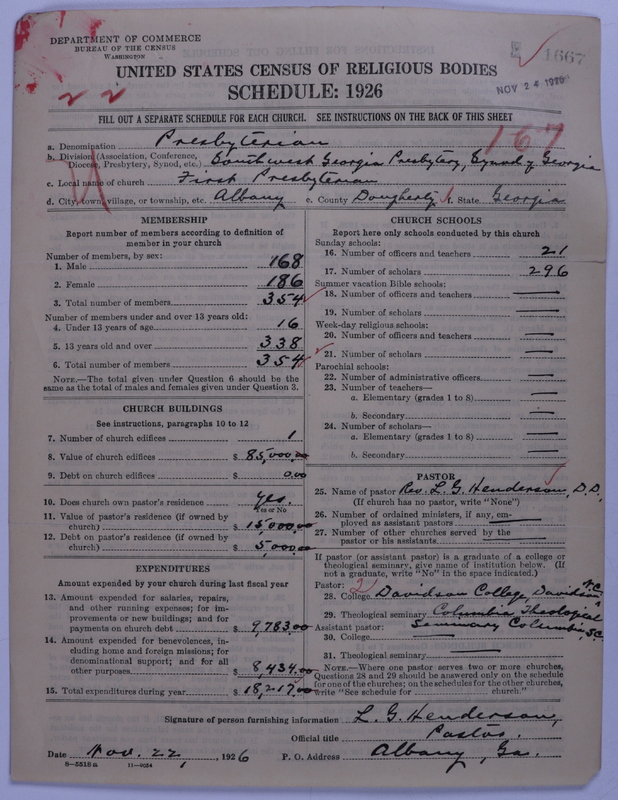 DEPARTMENT OF COMMERCE
BUREAU OF THE CENSUS
WASHINGTON
1667
NOV 24 1926
UNITED STATES CENSUS OF RELIGIOUS BODIES
SCHEDULE: 1926
2 2
FILL OUT A SEPARATE SCHEDULE FOR EACH CHURCH. SEE INSTRUCTIONS ON THE BACK OF THIS SHEET
167
a. Denomination Presbyterian
b. Division (Association, Conference, Diocese, Presbytery, Synod, etc.) Southwest Georgia Presbytery, Synod of Georgia
c. Local name of church First Presbyterian
d. City, town, village, or township, etc. Albany e. County Dougherty f. State Georgia
MEMBERSHIP
Report number of members according to definition of
member in your church
Number of members, by sex:
1. Male 168
2. Female 186
3. Total number of members 354
Number of members under and over 13 years old:
4. Under 13 years of age 16
5. 13 years old and over 338
6. Total number of members 354
NOTE.—The total given under Question 6 should be the
same as the total of males and females given under Question 3.
CHURCH BUILDINGS
See instructions, paragraphs 10 to 12
7. Number of church edifices 1
8. Value of church edifices $ 85,000.00
9. Debt on church edifices $ 0.00
10. Does church own pastor's residence yes.
Yes or No
11. Value of pastor's residence (if owned by
church) $ 15,000.00
12. Debt on pastor's residence (if owned by
church) $ 5,000.00
EXPENDITURES
Amount expended by your church during last fiscal year
13. Amount expended for salaries, repairs,
and other running expenses; for im-
provements or new buildings; and for
payments on church debt $ 9,783.00
14. Amount expended for benevolences, in-
cluding home and foreign missions; for
denominational support; and for all
other purposes $ 8,434.00
15. Total expenditures during year $ 18,217.00
CHURCH SCHOOLS
Report here only schools conducted by this church
Sunday schools:
16. Number of officers and teachers 21
17. Number of scholars 296
Summer vacation Bible schools:
18. Number of officers and teachers —
19. Number of scholars —
Week-day religious schools:
20. Number of officers and teachers —
21. Number of scholars —
Parochial schools:
22. Number of administrative officers —
23. Number of teachers—
a. Elementary (grades 1 to 8) —
b. Secondary —
24. Number of scholars—
a. Elementary (grades 1 to 8) —
b. Secondary —
PASTOR
25. Name of pastor Rev. L. G. Henderson, D.D.
(If church has no pastor, write "None")
26. Number of ordained ministers, if any, em-
ployed as assistant pastors —
27. Number of other churches served by the
pastor or his assistants —
If pastor (or assistant pastor) is a graduate of a college or
theological seminary, give name of institution below. (If
not a graduate, write "No" in the space indicated.)
Pastor:
28. College Davidson College, Davidson N.C.
29. Theological seminary Columbia Theological
Assistant pastor: Seminary Columbia, S.C.
30. College —
31. Theological seminary —
NOTE.—Where one pastor serves two or more churches,
Questions 28 and 29 should be answered only on the schedule
for one of the churches; on the schedules for the other churches,
write "See schedule for church."
Signature of person furnishing information L. G. Henderson,
Official title Pastor.
Date Nov. 22, 1926 P. O. Address Albany, Ga.
8-5518a 11-9034